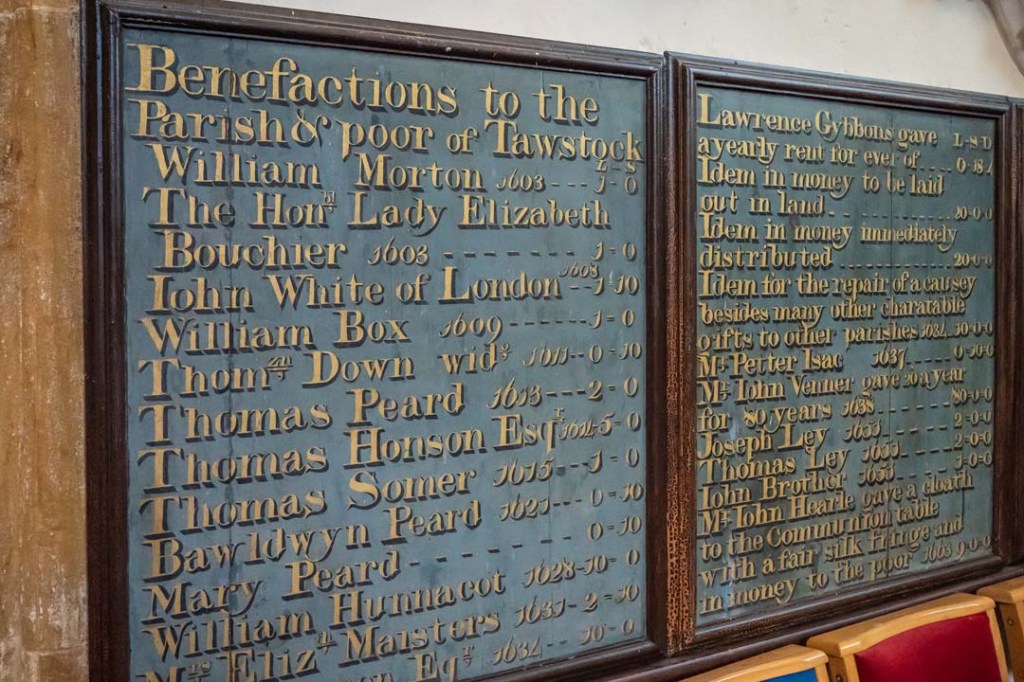 Benefactions to the
Parish & poor of Tawstock
L S
William Morton 1603 --- 1-0
The Honbl Lady Elizabeth
Bouchier 1603 ------- 1-0
Iohn White of London 1608 -- 1-10
William Box 1609 ----- 1-0
Thom Down wid 1611--0-10
Thomas Peard 1613---2-0
Thomas Honson Esqr 1614-5-0
Thomas Somer 1615--1-0
Bawldwyn Peard 1621 - 0-10
Mary Peard -------- 0-10
William Hunnacot 1628-10-0
Mrs Eliz Maisters 1631-2-10
Eqr 1634 - 10-0
Lawrence Gybbons gave L-S-D
ayearly rent for ever of .... 0-18-4
Idem in money to be laid
out in land -- 20-0-0
Idem in money immediately
distributed 20-0-0
Idem for the repair of a causey
besides many other charatable
gifts to other parishes 1634 10-0-0
Mr Petter Isac 1637 0-10-0
Mr Iohn Venner gave 20 a year
for 80 years 1638 ------ 80-0-0
Joseph Ley 1653 ------ 2-0-0
Thomas Ley 1653 ------ 2-0-0
Iohn Brother 1653 ----- 1-0-0
Mr Iohn Hearle gave a cloath
to the Communion table
with a fair silk fringe and
in money to the poor 1663 9-0-0